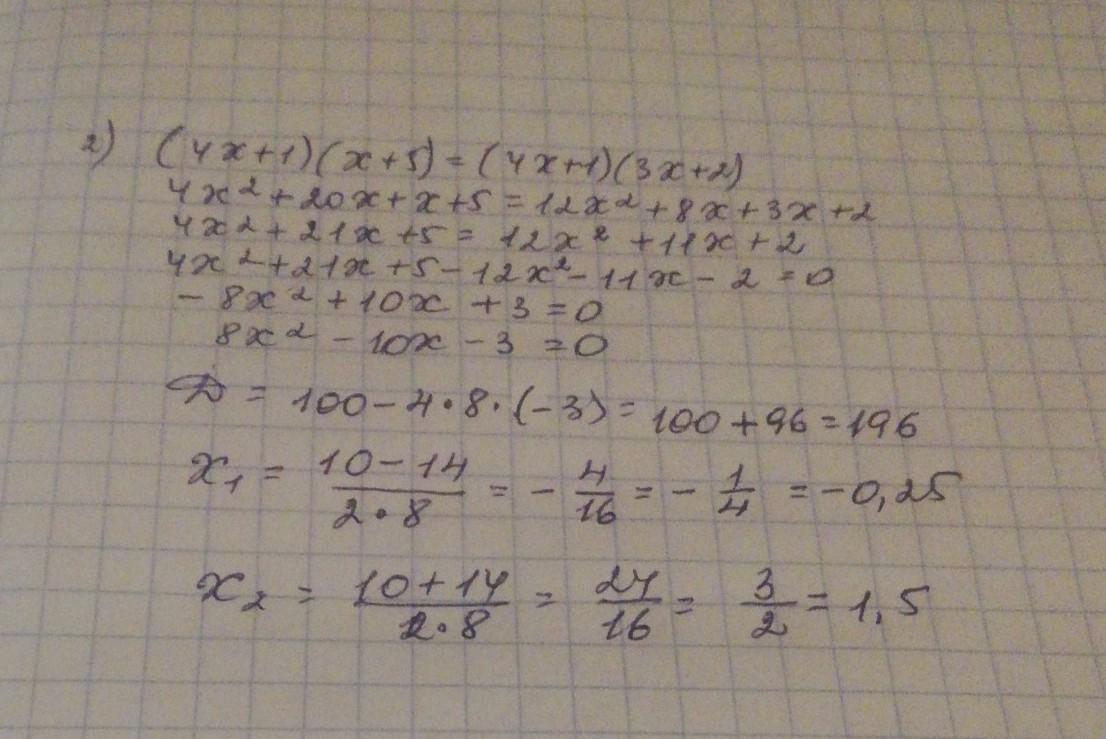 2) (4x+1)(x+5) = (4x+1)(3x+2)
4x² + 20x + x + 5 = 12x² + 8x + 3x + 2
4x² + 21x + 5 = 12x² + 11x + 2
4x² + 21x + 5 - 12x² - 11x - 2 = 0
- 8x² + 10x + 3 = 0
8x² - 10x - 3 = 0
D = 100 - 4·8·(-3) = 100 + 96 = 196
x₁ = (10 - 14)/(2·8) = - 4/16 = - 1/4 = -0,25
x₂ = (10 + 14)/(2·8) = 24/16 = 3/2 = 1,5